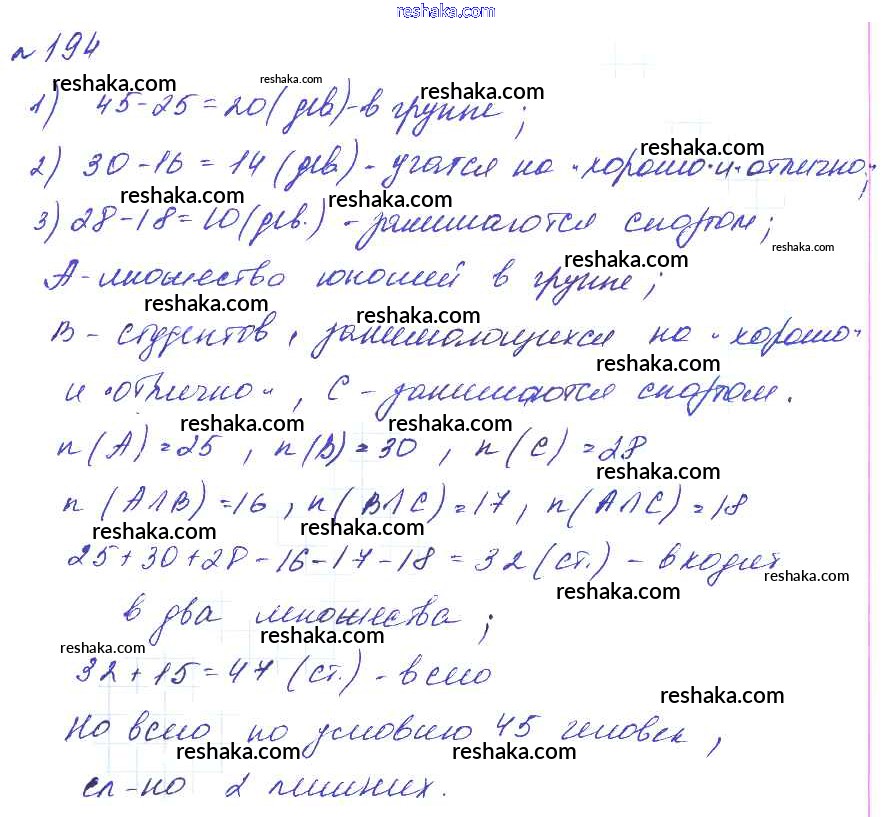 reshaka.com
№194
reshaka.com reshaka.com reshaka.com
1) 45-25=20(дев)-в группе;
reshaka.com
2) 30-16=14(дев)-учатся на "хорошо" и "отлично";
reshaka.com reshaka.com
3) 28-18=10(дев.)-занимаются спортом;
reshaka.com reshaka.com
А-множество юношей в группе;
reshaka.com reshaka.com
В-студентов, занимающихся на "хорошо"
reshaka.com
и "отлично", С-занимаются спортом.
reshaka.com reshaka.com
n(A)=25, n(B)=30, n(C)=28
reshaka.com
n(A∩B)=16, n(B∩C)=17, n(A∩C)=18
reshaka.com reshaka.com
25+30+28-16-17-18=32(ст.)-входит
reshaka.com reshaka.com
в два множества;
reshaka.com reshaka.com
32+15=47(ст.)-всего
reshaka.com
Но всего по условию 45 человек,
reshaka.com reshaka.com
сл-но 2 лишних.